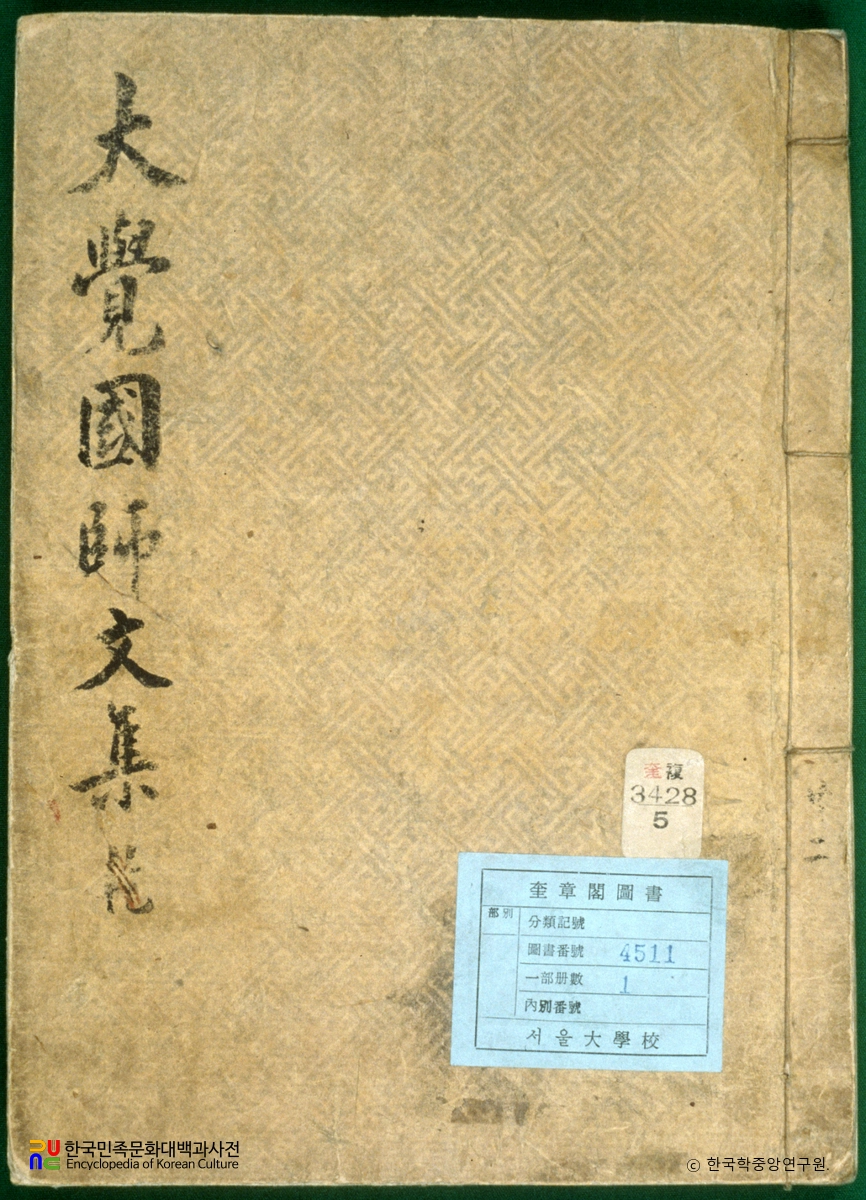 大覺國師文集
奎複
3428
5
二
奎章閣圖書
部別
分類記號
圖書番號 4511
一部册數 1
內別番號
서울大學校
한국민족문화대백과사전
Encyclopedia of Korean Culture
© 한국학중앙연구원.